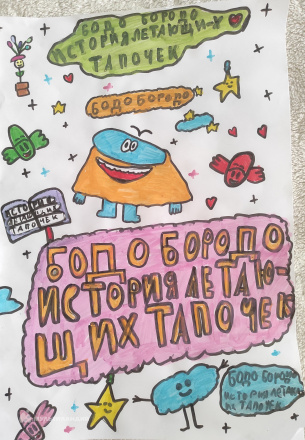 БОДО БОРОДО
ИСТОРИЯ ЛЕТАЮЩИ-Х
ТАПОЧЕК
БОДО БОРОДО
ИСТОРИЯ
ЛЕТАЮЩИХ
ТАПОЧЕК
БОДО БОРОДО
ИСТОРИЯ ЛЕТАЮ-
ЩИХ ТАПОЧЕК
БОДО БОРОДО
ИСТОРИЯ ЛЕТАЮЩ
ИХ ТАПОЧЕК